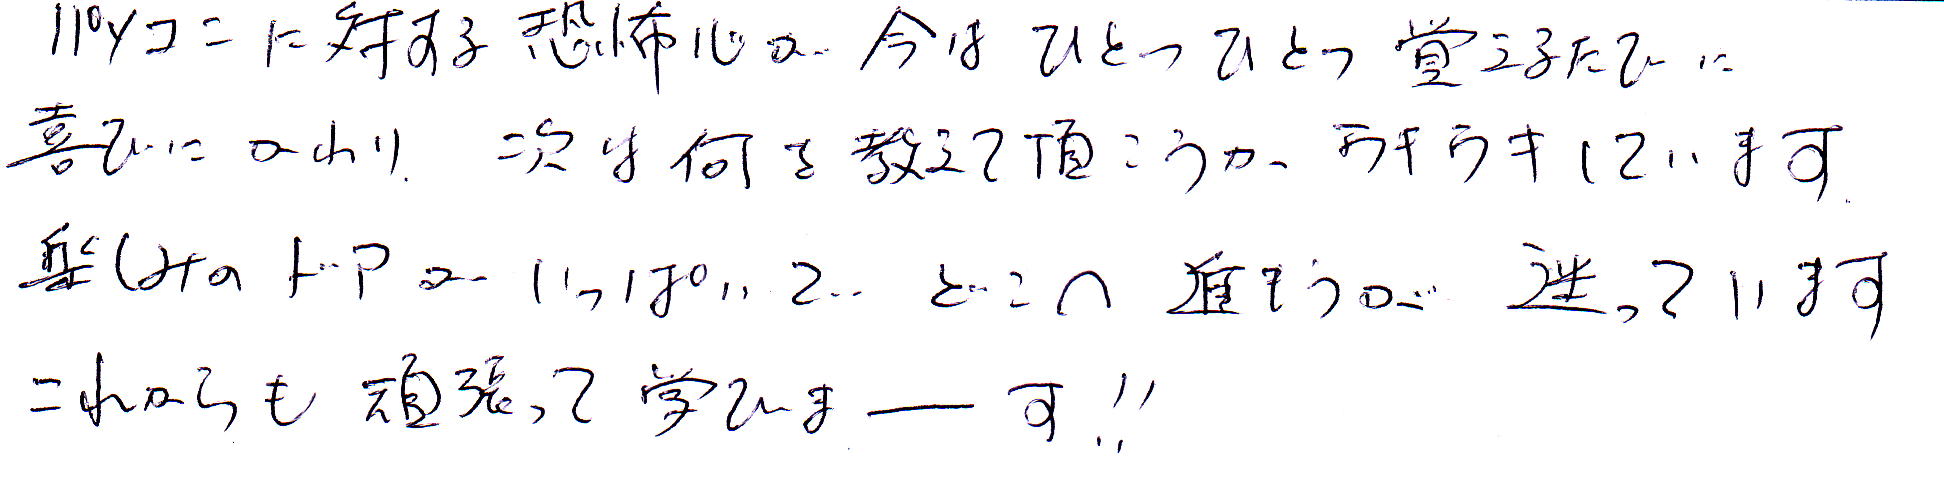 パソコンに対する恐怖心が 今は ひとつひとつ 覚えるたびに
喜びにかわり 次は何を教えて頂こうか ウキウキしています
楽しみのドアが いっぱいで どこへ 進もうか 迷っています
これからも 頑張って 学びまーす!!